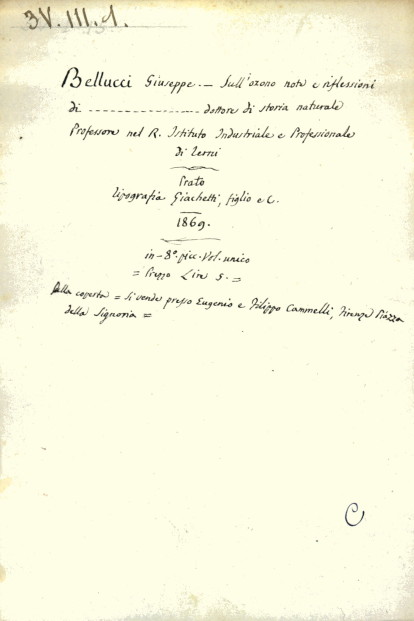 3V.III.d.
Bellucci Giuseppe. — Sull'ozono note e riflessioni
di - - - - - - - - - - - - dottore di storia naturale
Professore nel R. Istituto Industriale e Professionale
di Terni
Prato
Tipografia Giachetti, figlio e C.
1869.
in-8°. picc. Vol. unico
= Prezzo Lire 5. =
Sulla coperta = Si vende presso Eugenio e Filippo Cammelli, Firenze Piazza
della Signoria =
C